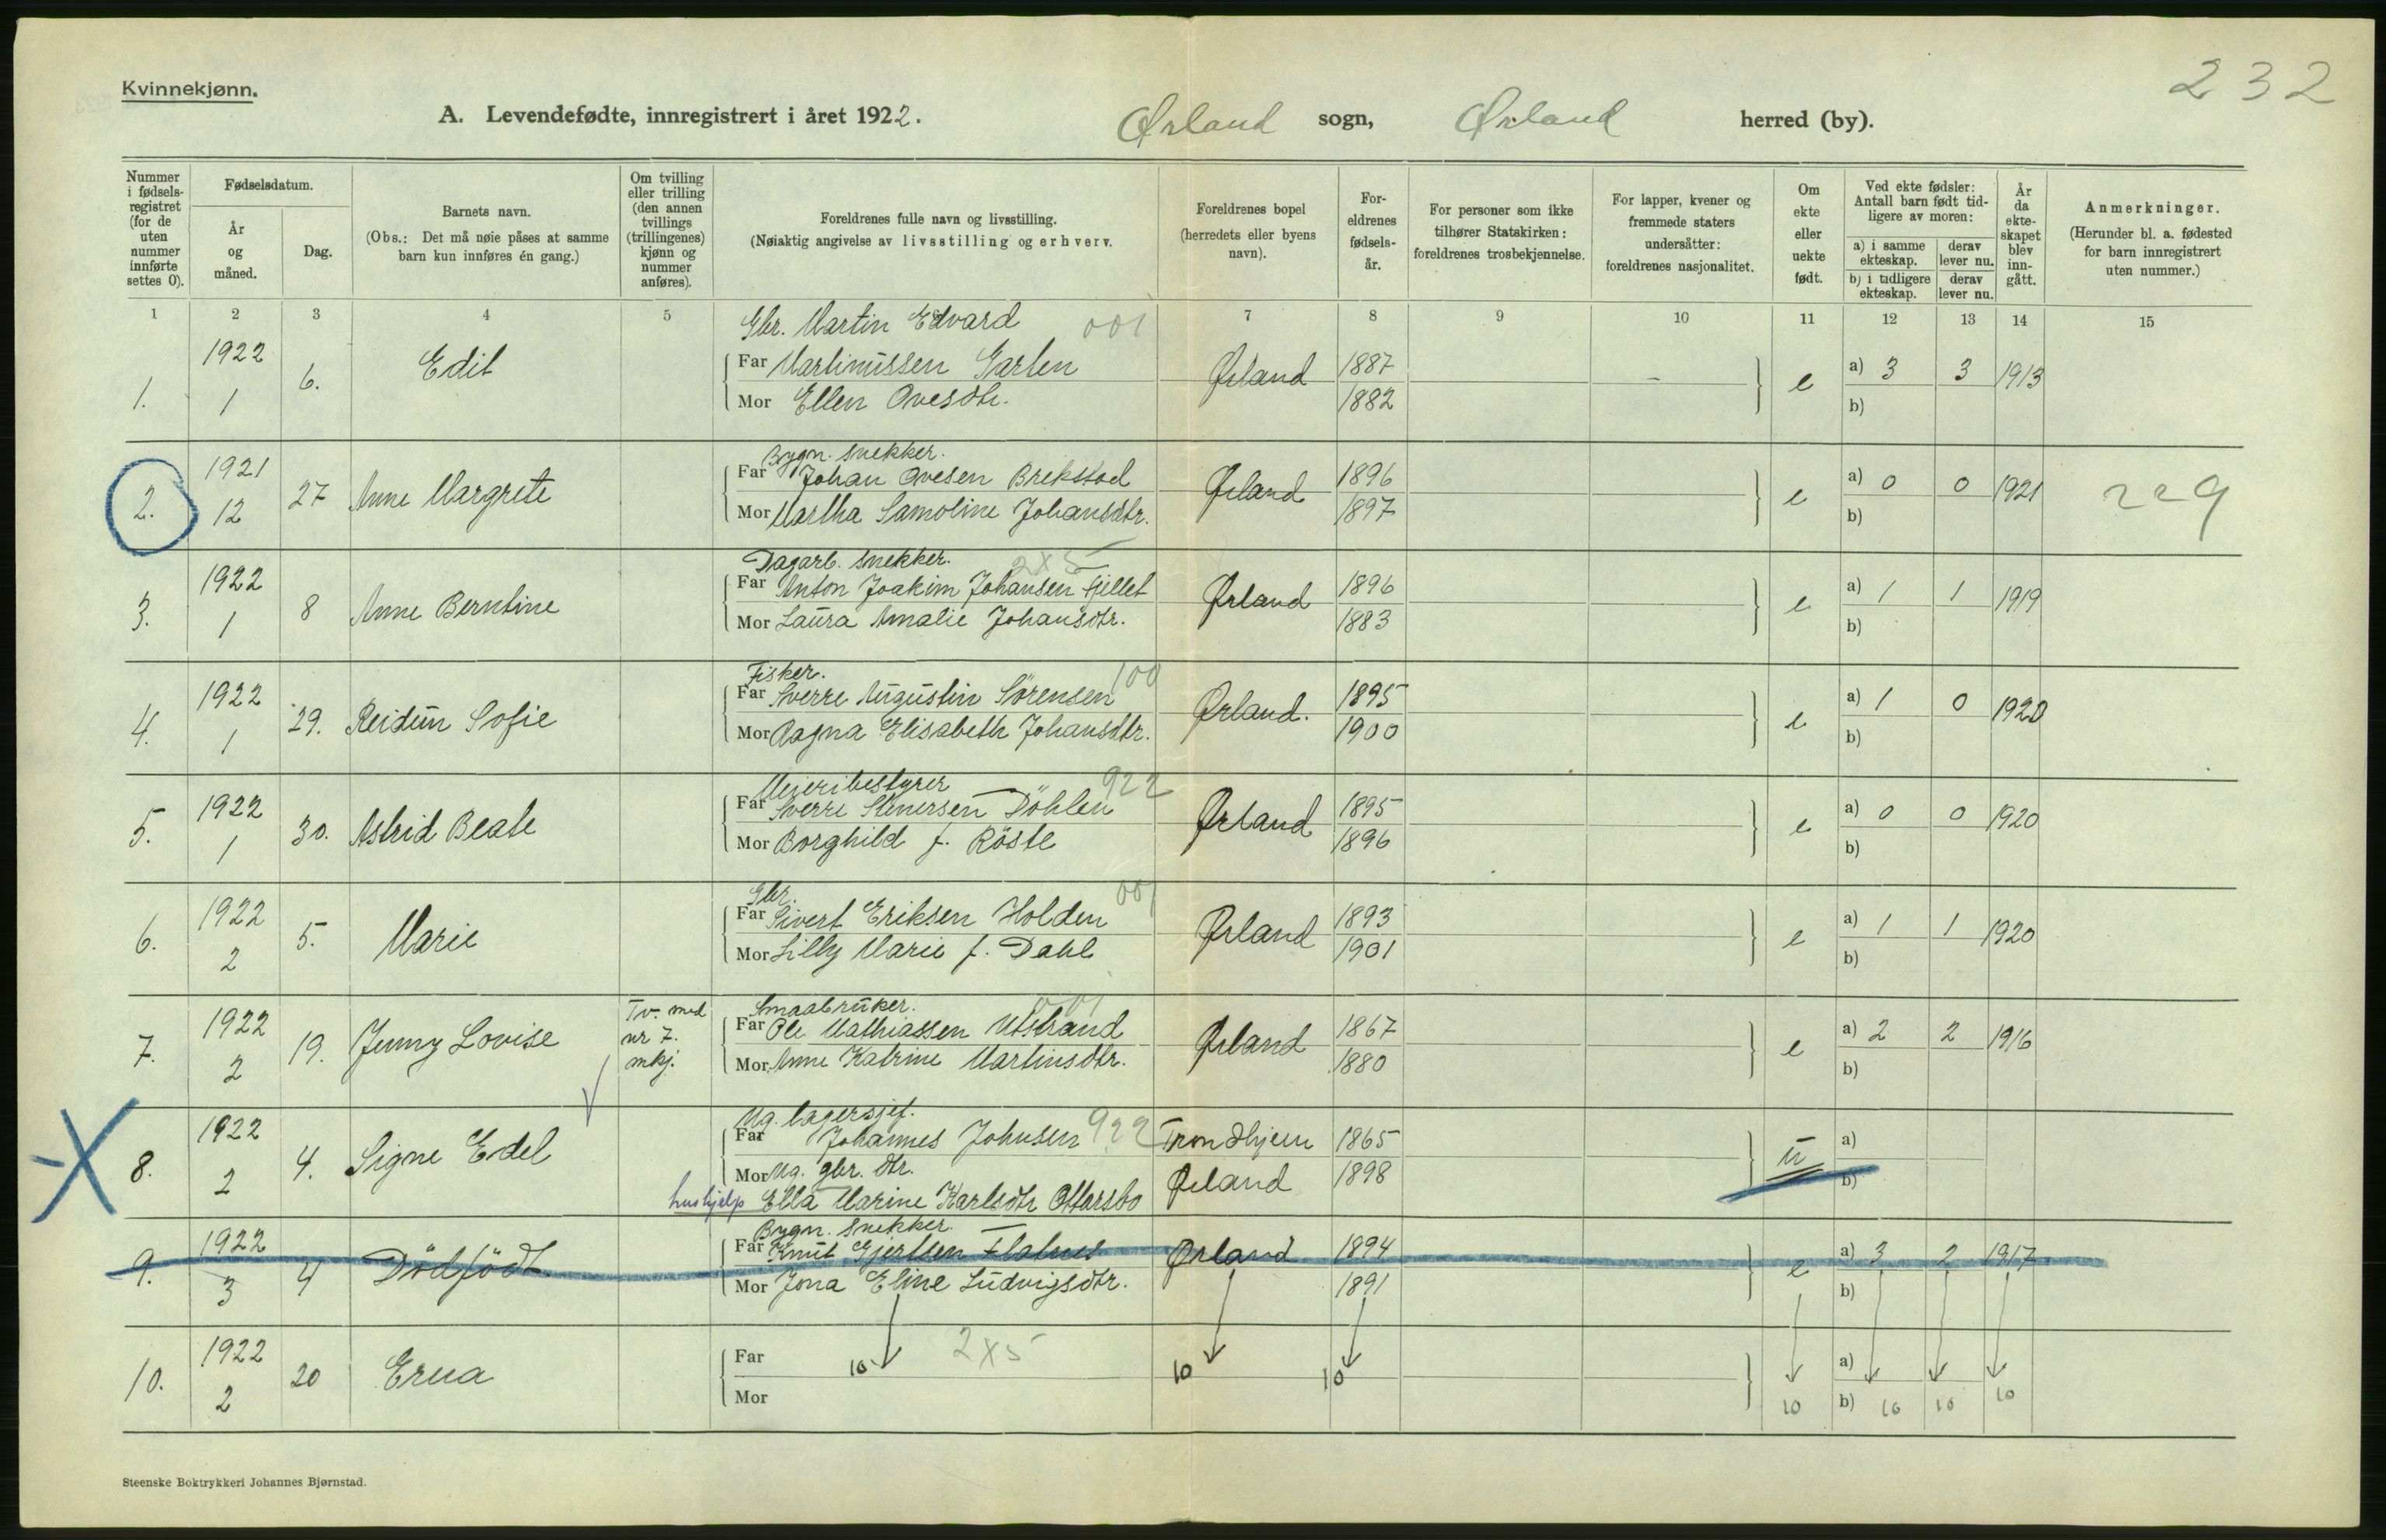 232
Kvinnekjønn.
A. Levendefødte, innregistrert i året 1922. Ørland sogn, Ørland herred (by).
Nummer i fødsels-registret (for de uten nummer innførte settes 0).
Fødselsdatum.
År og måned.
Dag.
Barnets navn.
(Obs.: Det må nøie påses at samme barn kun innføres én gang.)
Om tvilling eller trilling (den annen tvillings (trillingenes) kjønn og nummer anføres).
Foreldrenes fulle navn og livsstilling.
(Nøiaktig angivelse av livsstilling og erhverv.
Foreldrenes bopel (herredets eller byens navn).
For-eldrenes fødsels-år.
For personer som ikke tilhører Statskirken: foreldrenes trosbekjennelse.
For lapper, kvener og fremmede staters undersåtter: foreldrenes nasjonalitet.
Om ekte eller uekte født.
Ved ekte fødsler: Antall barn født tid-ligere av moren:
a) i samme ekteskap.
derav lever nu.
b) i tidligere ekteskap.
derav lever nu.
År da ekte-skapet blev inn-gått.
Anmerkninger.
(Herunder bl. a. fødested for barn innregistrert uten nummer.)
1 2 3 4 5 7 8 9 10 11 12 13 14 15
Gbr. Martin Edvard 001
1. 1922 1 6. Edit Far Martinussen Garten Ørland 1887 - e a) 3 3 1913
Mor Ellen Ovesdtr. 1882 b)
Bygn. snekker.
2. 1921 12 27 Anne Margrete Far Johan Ovesen Brekstad Ørland 1896 e a) 0 0 1921 229
Mor Martha Samoline Johansdtr. 1897 b)
Dagarb. snekker. 2x5
3. 1922 1 8 Anne Berntine Far Anton Joakim Johansen Fjellet Ørland 1896 e a) 1 1 1919
Mor Laura Amalie Johansdtr. 1883 b)
Fisker. 100
4. 1922 1 29. Reidun Sofie Far Sverre Augustin Sörensen Ørland. 1895 e a) 1 0 1920
Mor Ragna Elisabeth Johansdtr. 1900 b)
Meieribestyrer 922
5. 1922 1 30. Astrid Beate Far Sverre Stenersen Döhlen Ørland 1895 e a) 0 0 1920
Mor Borghild f. Röste 1896 b)
Gbr. 001
6. 1922 2 5. Marie Far Sivert Eriksen Holden Ørland 1893 e a) 1 1 1920
Mor Lilly Marie f. Dahl 1901 b)
Smaabruker. 001
7. 1922 2 19. Jenny Lovise Tv. med nr 7. mkj. Far Ole Mathiassen Utstrand Ørland 1867 e a) 2 2 1916
Mor Anne Katrine Martinsdtr. 1880 b)
Ug. lagersjef.
8. 1922 2 4. Signe Edel Far Johannes Johnsen 922 Trondhjem 1865 u a)
Mor Ug. gbr. dtr. Ørland 1898 b)
hushjelp Ella Marine Karlsdtr Ottersbo
Bygn. snekker.
9. 1922 3 4 Dödfödt. Far Knut Gjertsen Flatnes Ørland 1894 e a) 3 2 1917
Mor Jona Eline Ludvigsdtr. 1891 b)
10. 1922 2 20 Erna Far 10 2x5 10 10 a)
Mor 10 b) 10 10 10
Steenske Boktrykkeri Johannes Bjørnstad.